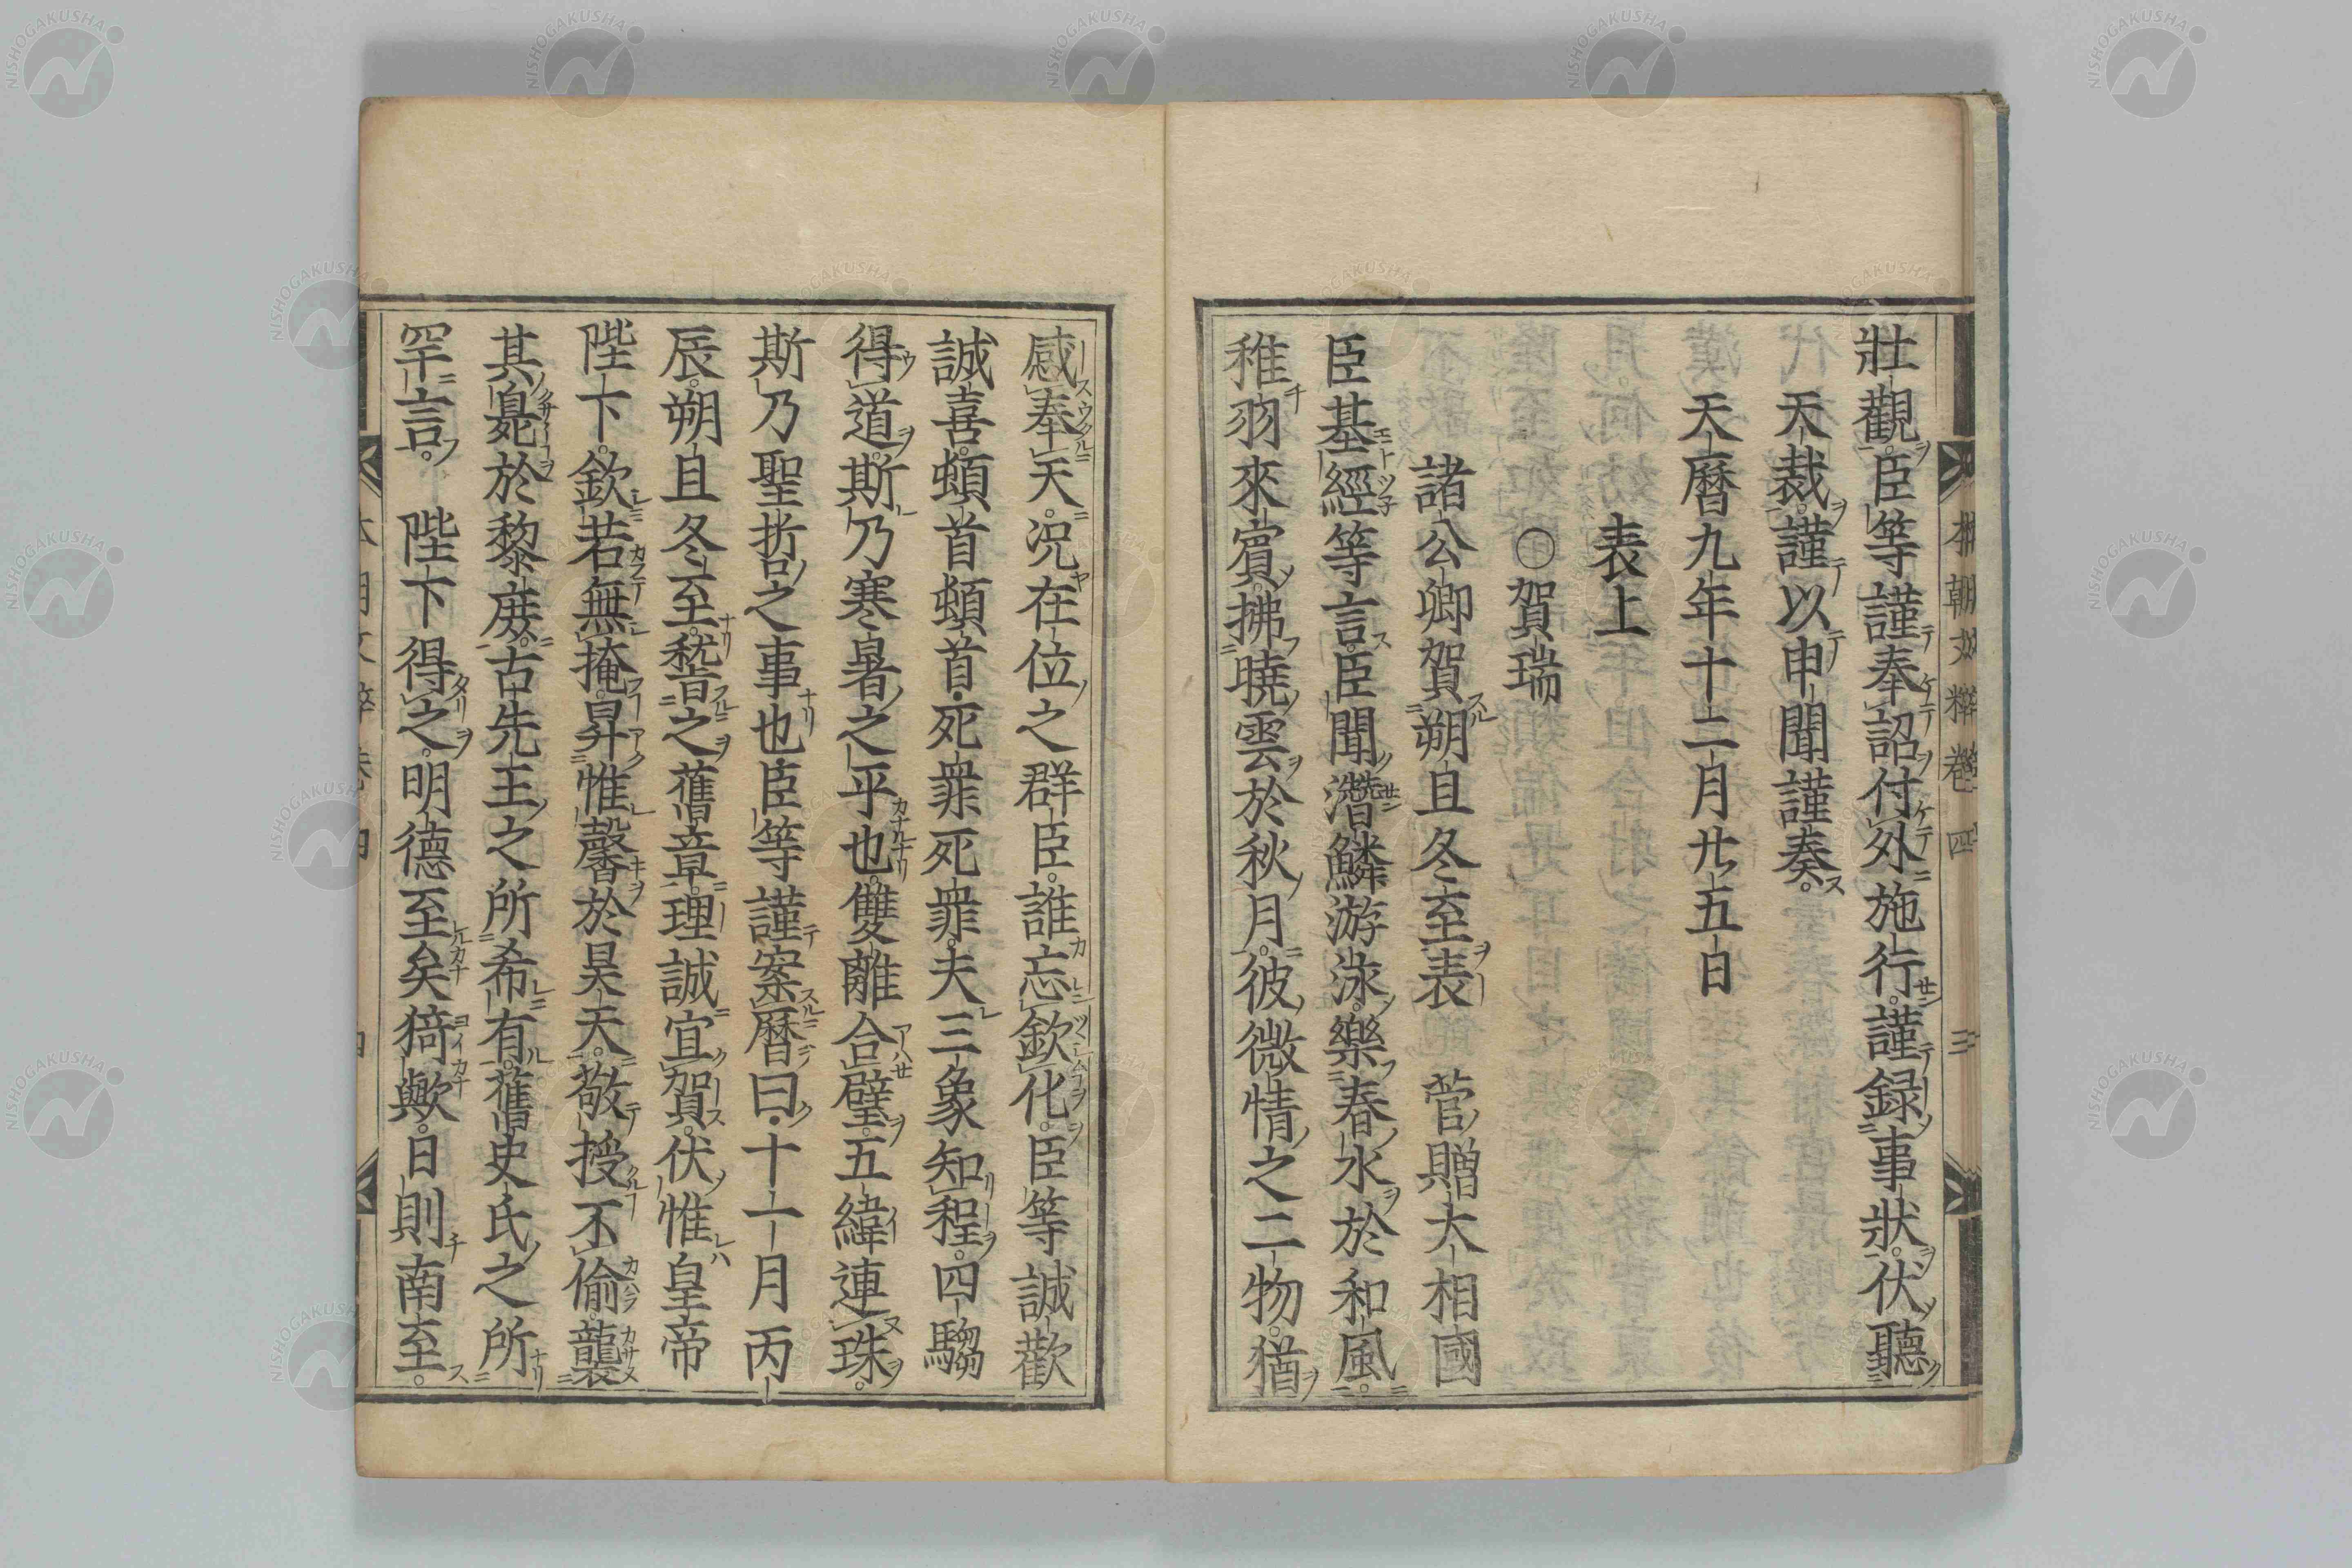 壯觀。臣等謹奉詔付外施行。謹録事狀。伏聽
天裁。謹以申聞謹奏。
天曆九年十二月廿五日
表上
○賀瑞
諸公卿賀朔旦冬至表 菅贈大相國
臣基經等言。臣聞潛鱗游泳。樂春水於和風。
稚羽來賓。拂曉雲於秋月。彼微情之二物。猶
感奉天。況在位之群臣。誰忘欽化。臣等誠歡
誠喜。頓首頓首・死罪死罪。夫三象知程。四騶
得道。斯乃寒暑之平也。雙離合璧。五緯連珠。
斯乃聖哲之事也臣等謹案曆曰・十一月丙
辰。朔旦冬至。嵇之舊章。理誠宜賀。伏惟皇帝
陛下。欽若無掩。昇惟馨於昊天。敬授不偷。襲
其毙於黎庶。古先王之所希有。舊史氏之所
罕言。 陛下得之。明德至矣猗歟。日則南至。
本朝文粹卷四 三
NISHOGAKUSHA